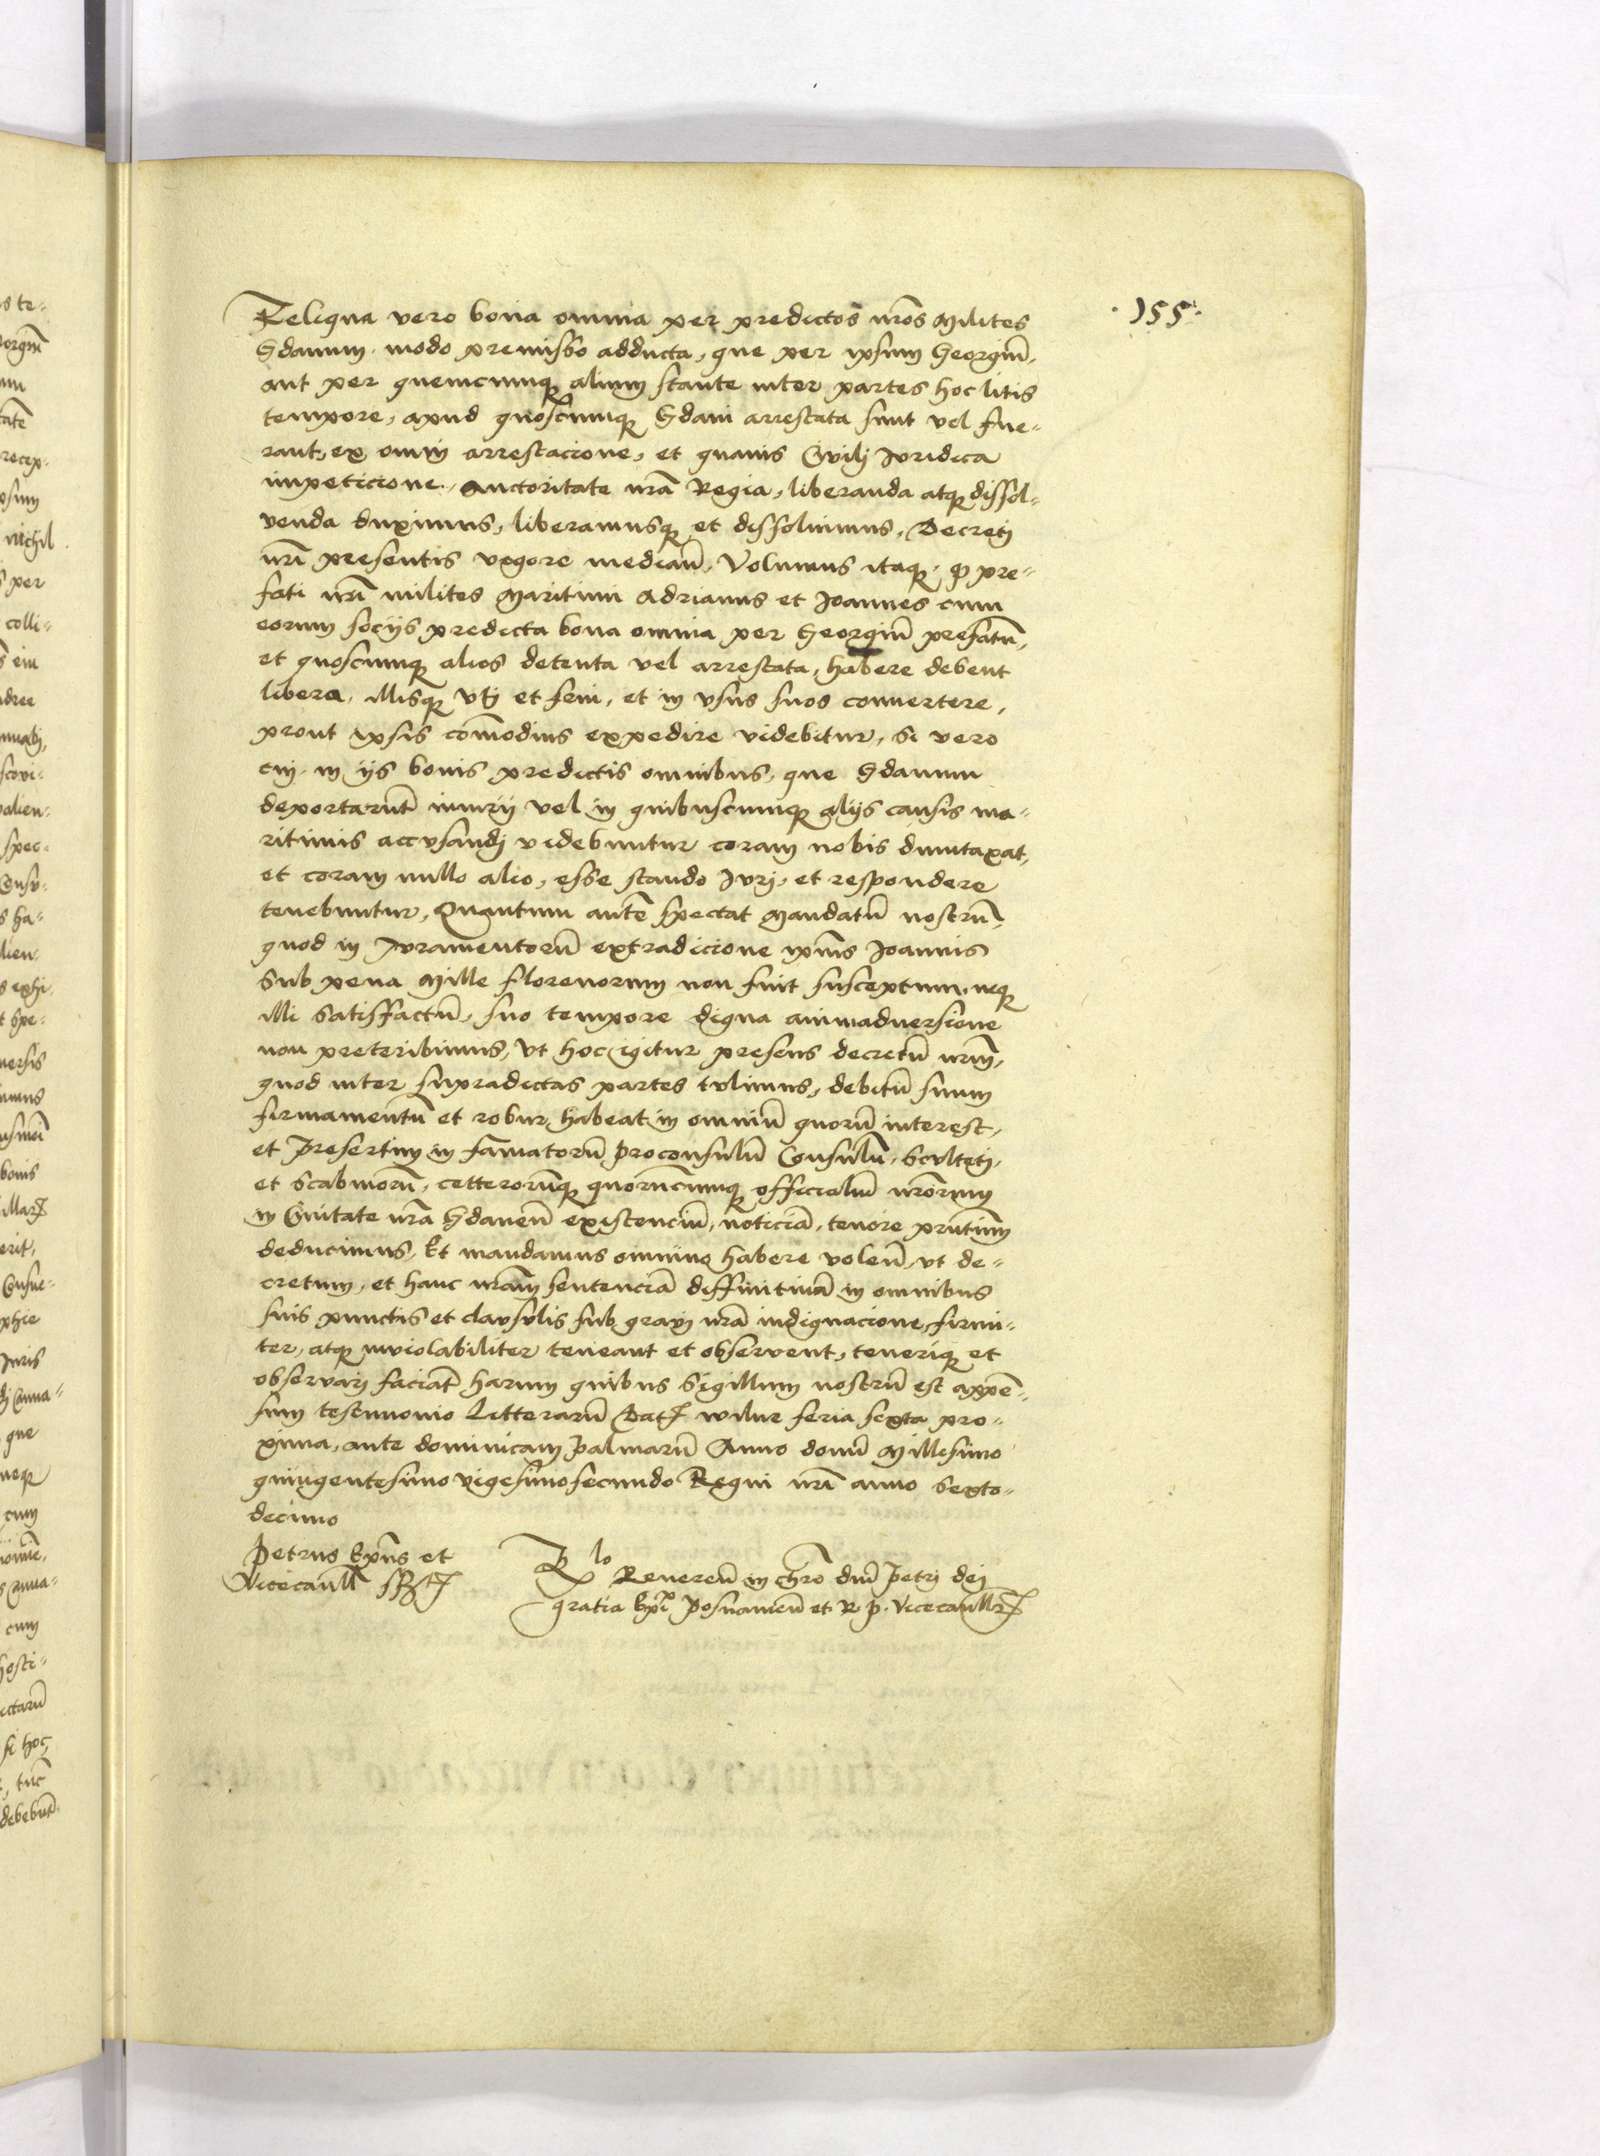 ·155·
Reliqua vero bona omnia per predictos nr̃os Milites
Gdanum modo premisso adducta, que per ipsum Georgiũ,
aut per quemcumq alium stante inter partes hoc litis
tempore, apud quoscumq Gdani arrestata sunt vel fue-
rant, ex omni arrestacione, et quavis Civilj Iuridica
impeticione Auctoritate nr̃a Regia, liberanda atq dissol-
venda duximus, liberamusq et dissolvimus, Decretj
nr̃i presentis vigore mediañ, Volumus itaq, ꝙ pre-
fati nr̃i milites Maritimi Adrianus et Joannes cum
eorum socijs predicta bona omnia per Georgiũ prefatũ,
et quoscumq alios detenta vel arrestata, habere debent
libera, illisq Vtj et frui, et in vsus suos convertere,
prout ipsis com̃odius expedire videbitur, Si vero
cuj in ijs bonis predictis omnibus, que Gdanum
deportarunt̃ iniurij vel in quibuscumq alijs causis ma-
ritimis accusandj videbuntur coram nobis dumtaxat,
et coram nullo alio, esse stando Iurj, et respondere
tenebuntur, Quantum aut̃e spectat Mandatũ nostrũ,
quod in Iuramentorũ extradicione ip̃ius Joannis
Sub pena Mille florenorum non fuit susceptum, neq
illi satisfactũ, suo tempore digna animadversione
non preteribimus, Vt hoc igitur presens decretũ nr̃m,
quod inter supradictas partes tulimus, debitũ suum
firmamentũ et robur habeat, in omniũ quorũ interest,
et Presertim in famatorũ Proconsulũ Consulũ, Scultetj,
et Scabinorũ, cetterorũq quorũcumq officialiũ nr̃orum
in Civitate nr̃a Gdaneñ existenciũ, noticiã, tenore pñtium
deducimus, Et mandamus omnino habere voleñ, vt de-
cretum, et hanc nr̃am sentenciã diffinitivã in omnibus
suis punctis et clausulis sub gravj nr̃a indignacione, firmi-
ter, atq inviolabiliter teneant et observent, tenerìq et
observarj faciãt harum quibus Sigillum nostrũ est appẽ-
sum testimonio Litterarũ Dat̃ Wilne feria sexta pro-
xima, ante dominicam Palmarũ Anno dom̃i Millesimo
quingentesimo vigesimosecundo Regni nr̃i anno Sexto-
decimo
Petrus Ep̃us et
Vicecanll̃ sst̃
Rlo Revereñ in chr̃o dñi Petrj dej
gratia Ep̃i Posnanieñ et R P Vicecanllr̃